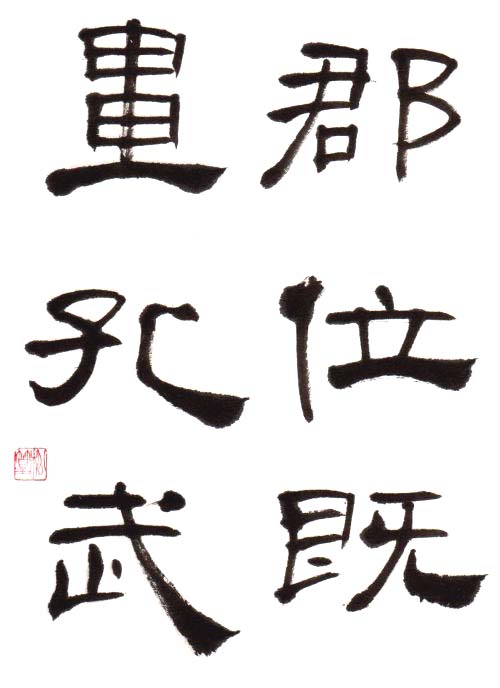 郡位既
重孔武